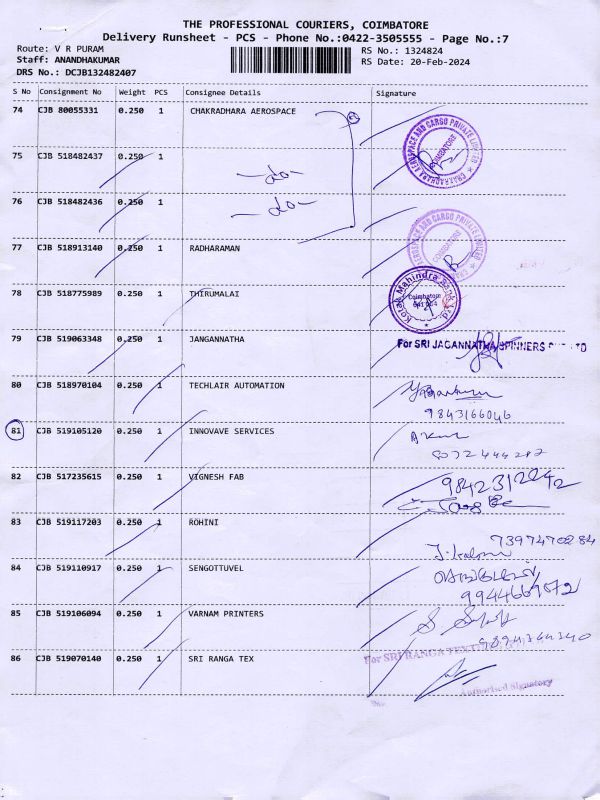 THE PROFESSIONAL COURIERS, COIMBATORE
Delivery Runsheet - PCS - Phone No.:0422-3505555 - Page No.:7
Route: V R PURAM
RS No.: 1324824
Staff: ANANDHAKUMAR
RS Date: 20-Feb-2024
DRS No.: DCJB132482407
S No Consignment No Weight PCS Consignee Details Signature
74 CJB 80055331 0.250 1 CHAKRADHARA AEROSPACE
CHAKRADHARA AEROSPACE AND CARGO PRIVATE LIMITED
COIMBATORE
75 CJB 518482437 0.250 1 -do-
76 CJB 518482436 0.250 1 -do-
AEROSPACE AND CARGO PRIVATE LIMITED
COIMBATORE
77 CJB 518913140 0.250 1 RADHARAMAN
78 CJB 518775989 0.250 1 THIRUMALAI
Kotak Mahindra Bank Ltd.
Coimbatore
79 CJB 519063348 0.250 1 JANGANNATHA
For SRI JAGANNATHA SPINNERS LTD
80 CJB 518970104 0.250 1 TECHLAIR AUTOMATION
9843166046
81 CJB 519105120 0.250 1 INNOVAVE SERVICES
82 CJB 517235615 0.250 1 VIGNESH FAB
9842312242
83 CJB 519117203 0.250 1 ROHINI
7397470284
84 CJB 519110917 0.250 1 SENGOTTUVEL
85 CJB 519106094 0.250 1 VARNAM PRINTERS
9894344340
86 CJB 519070140 0.250 1 SRI RANGA TEX
For SRI RANGA TEX
Authorised Signatory